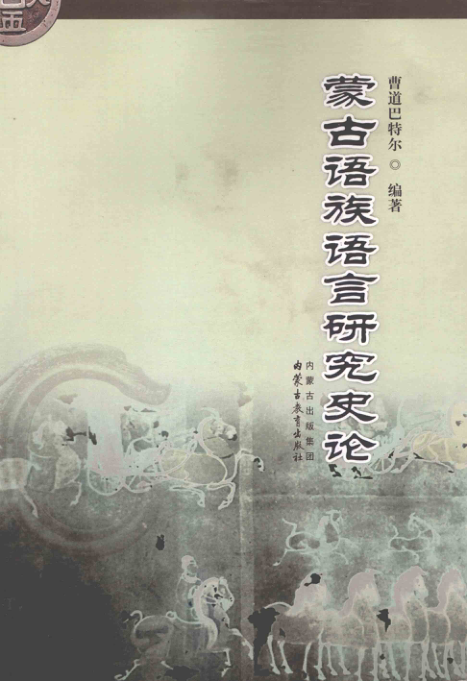 曹道巴特尔◎编著
蒙古语族语言研究史论
内蒙古出版集团
内蒙古教育出版社